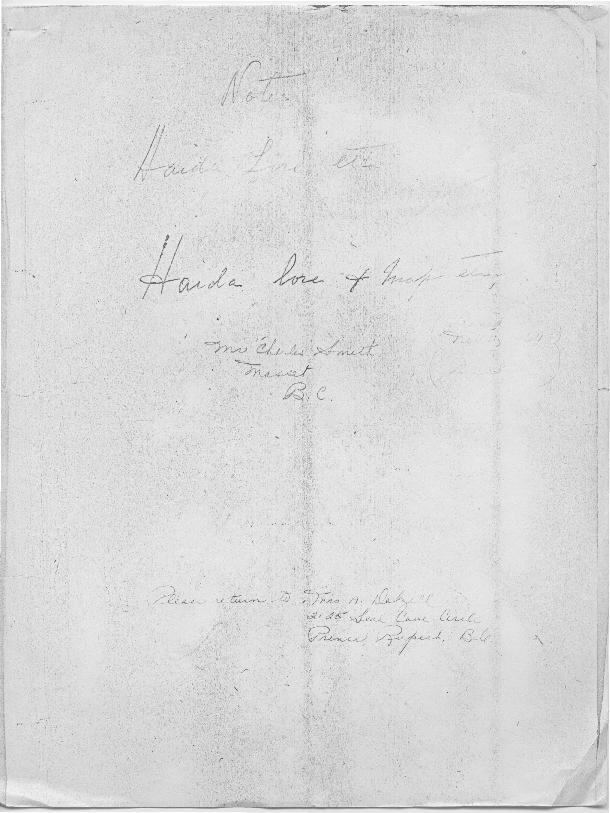 Notes
Haida Lore etc
Haida lore & Map etc
Mr Charles Smith
Masset
B.C.
Please return to Mrs A. Dalzell
Seal Cove Circle
Prince Rupert, B.C.